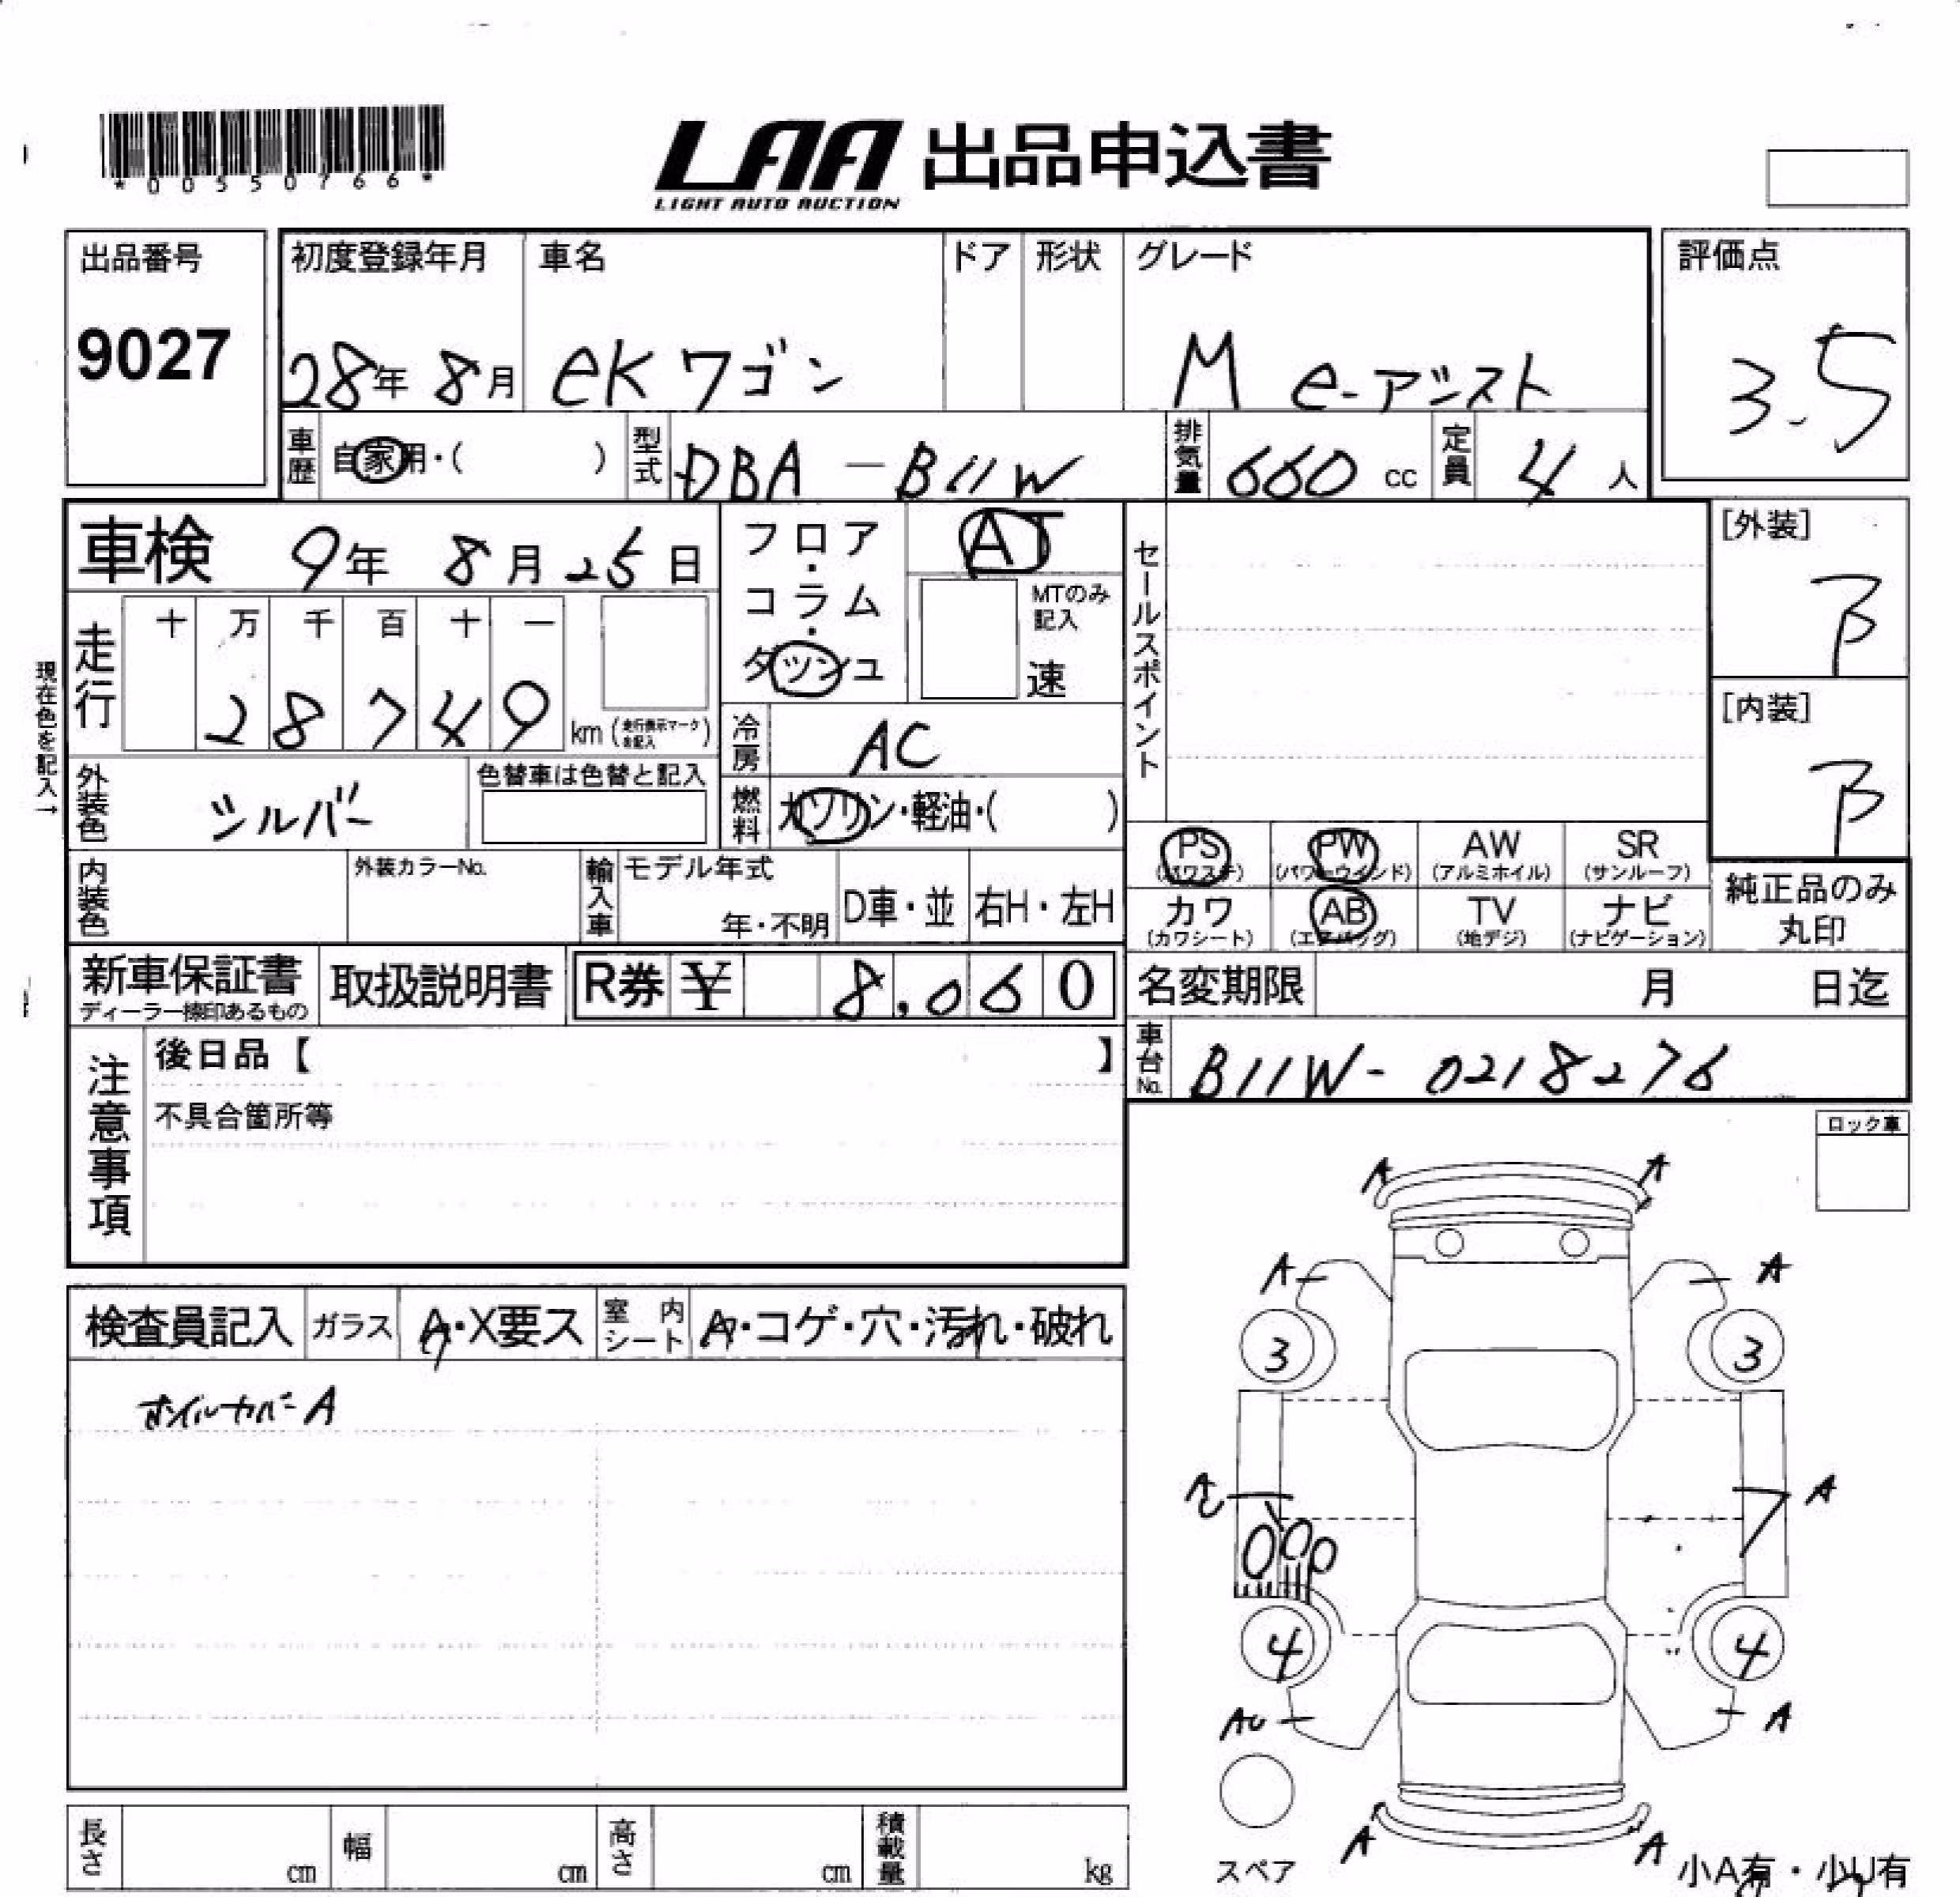 *00550766*
LAA 出品申込書
LIGHT AUTO AUCTION
出品番号
9027
初度登録年月 車名 ドア 形状 グレード
28年 8月 eKワゴン M e-アシスト
評価点
3.5
車歴 自家用・( ) 型式 DBA-B11W 排気量 660 cc 定員 4 人
車検 9年 8月 25日
フロア・コラム・ タツンユ
AT
MTのみ記入
速
セールスポイント
[外装]
B
[内装]
B
現在色を記入→
走行 十 万 千 百 十 一
28749 km (走行表示マークを記入)
冷房 AC
外装色 シルバー 色替車は色替と記入
燃料 ガソリン・軽油・( )
内装色 外装カラーNo. 輸入車 モデル年式
年・不明 D車・並 右H・左H
PS (パワステ) PW (パワーウインド) AW (アルミホイル) SR (サンルーフ)
カワ (カワシート) AB (エアバッグ) TV (地デジ) ナビ (ナビゲーション)
純正品のみ
丸印
新車保証書 取扱説明書 R券 ¥ 8,060
ディーラー捺印あるもの
名変期限 月 日迄
車台No. B11W-0218276
注意事項
後日品【 】
不具合箇所等
ロック車
検査員記入 ガラス A・X要ス 室内シート A・コゲ・穴・汚れ・破れ
ホイルカバーA
A A
A A
3 3
A A
4 4
AU A
A A
スペア
小A有・小U有
長さ cm 幅 cm 高さ cm 積載量 kg